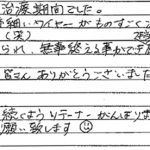 治療期間でした。
細いワイヤーがものすごく
(笑)
られ、無事終える事ができ
皆さん ありがとうございました
続くようリテーナーがんばりま
願い致します